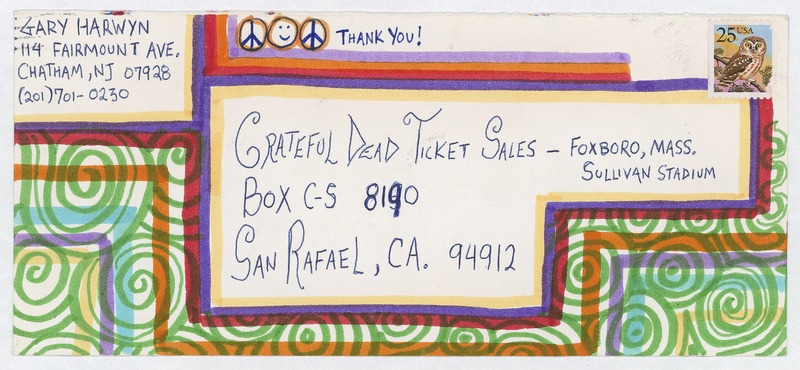 GARY HARWYN
114 FAIRMOUNT AVE.
CHATHAM, NJ 07928
(201) 701-0230
THANK YOU!
25 USA
GRATEFUL DEAD TICKET SALES – FOXBORO, MASS.
SULLIVAN STADIUM
BOX C-S 8190
SAN RAFAEL, CA. 94912